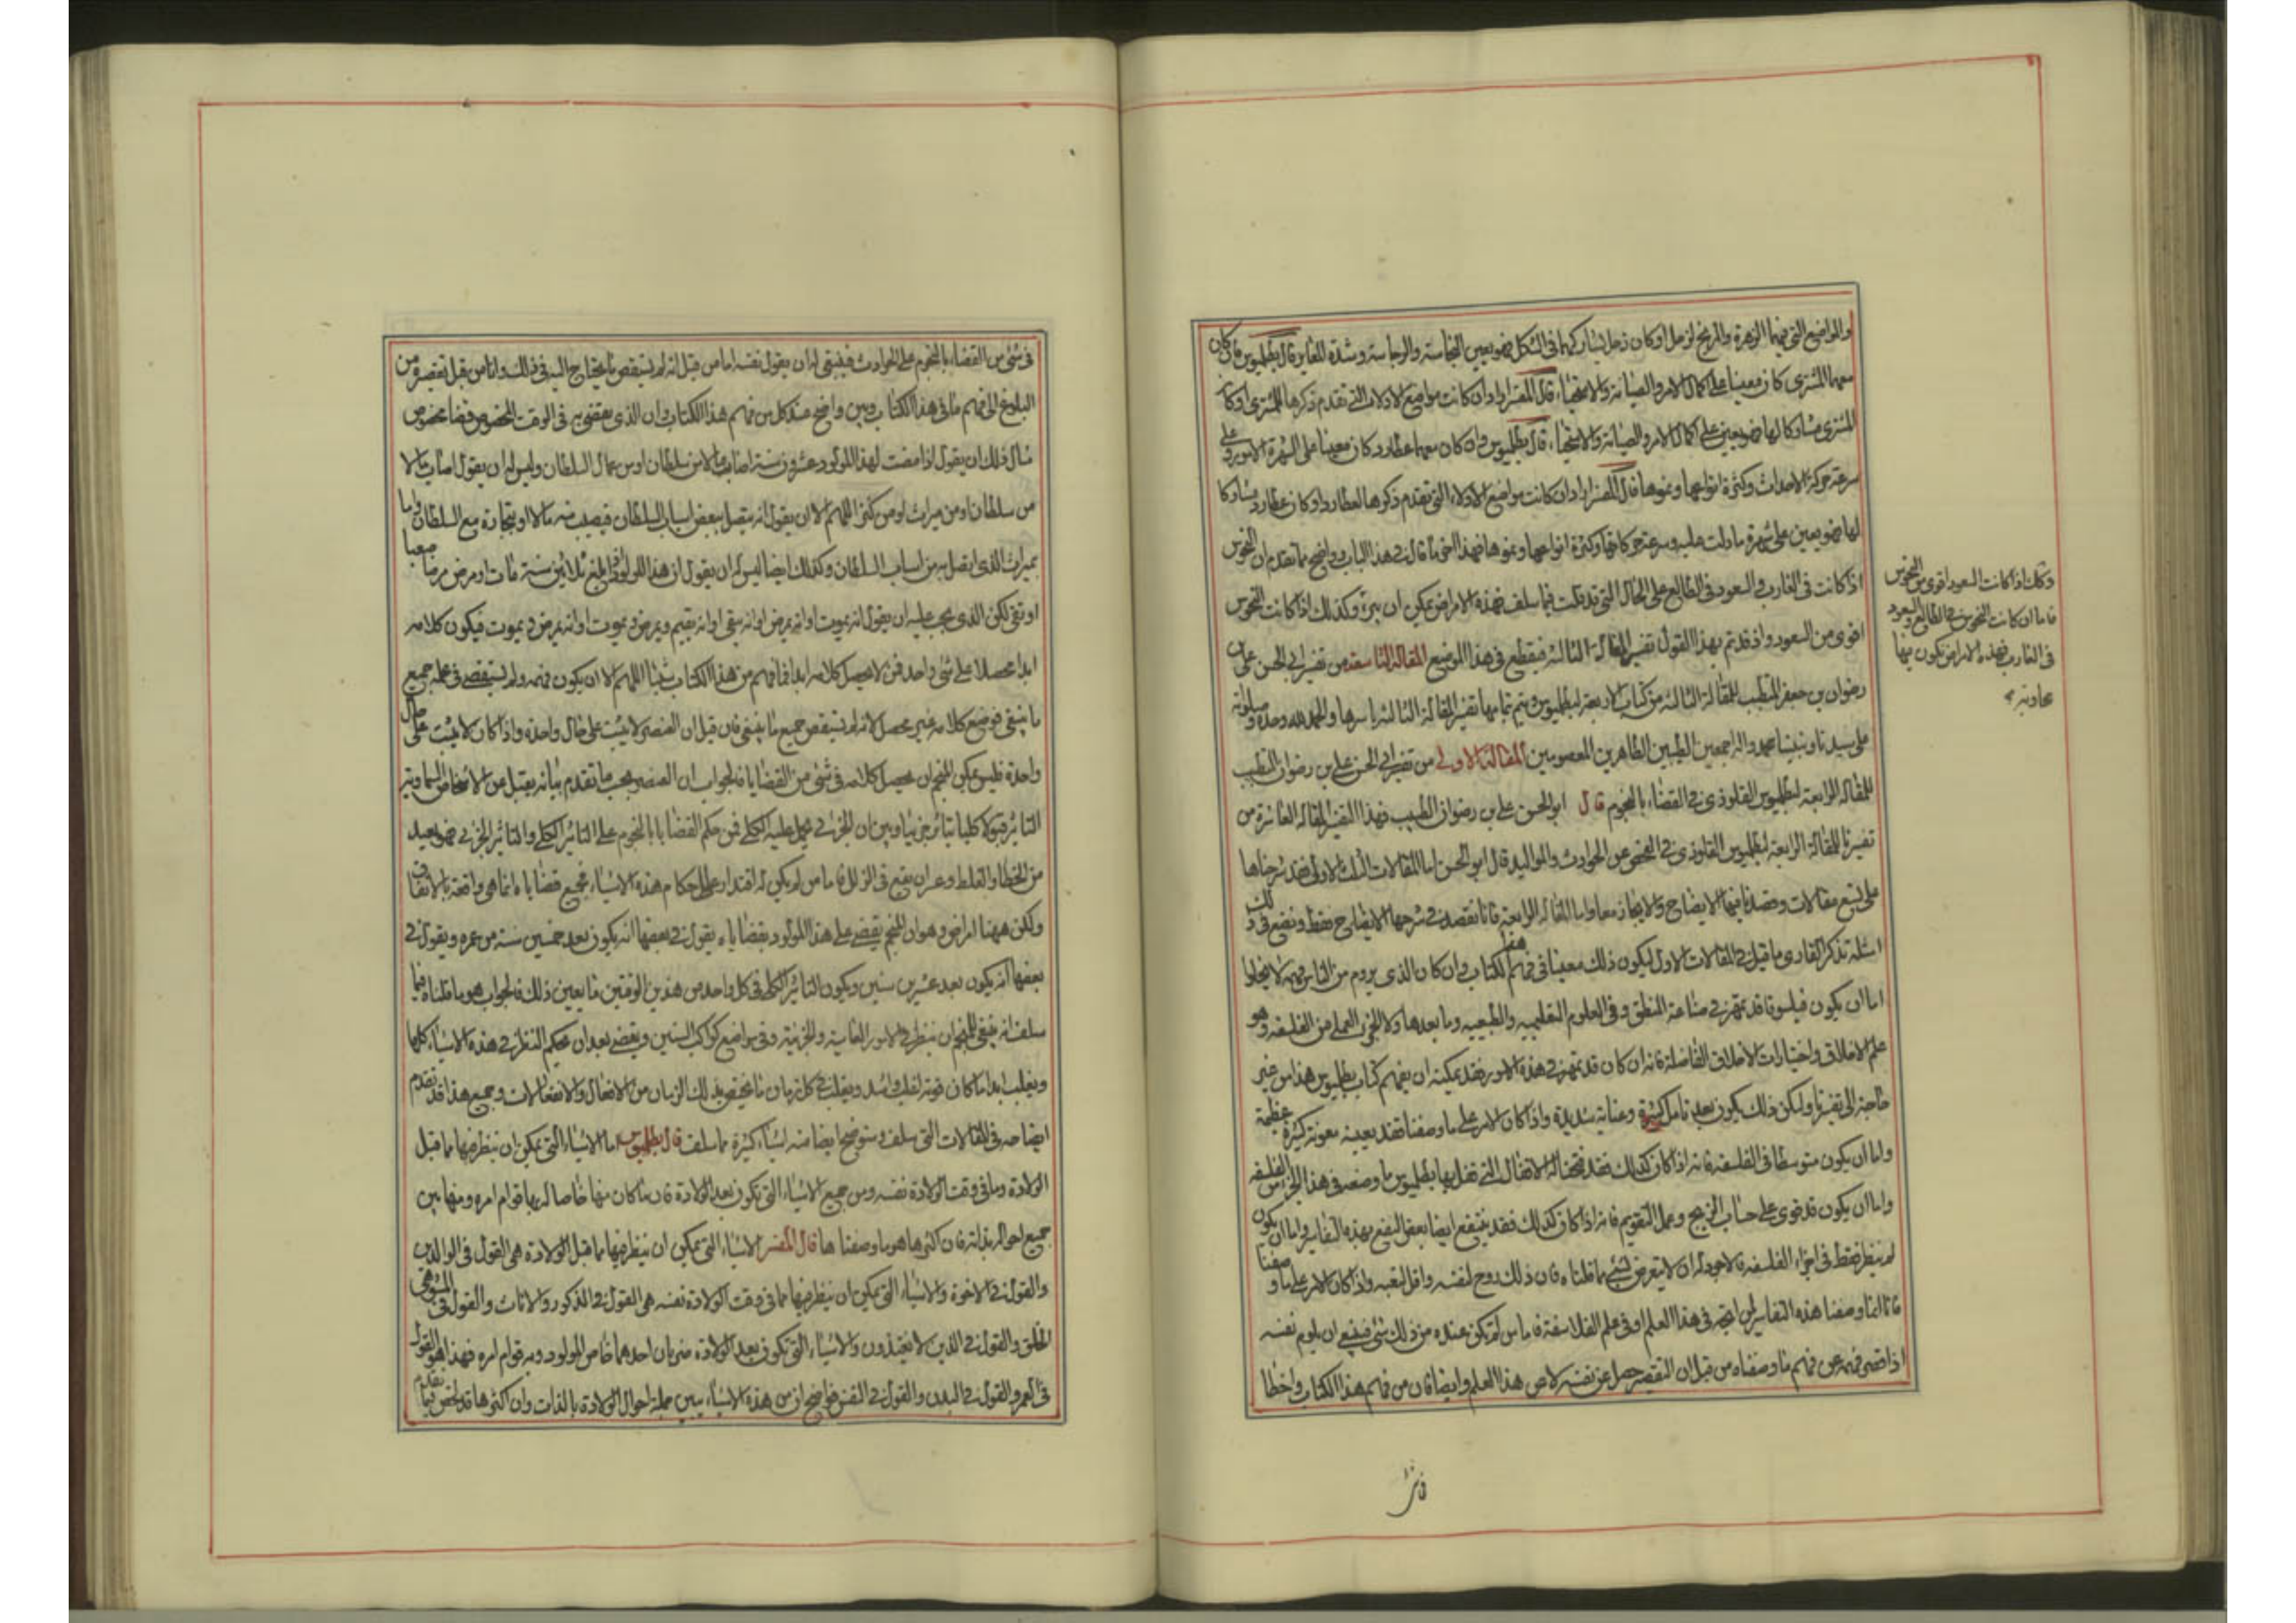 والمواضع التي فيها الزهرة والمريخ لزحل او كان زحل يشاركهما في الشكل فهو يعين النجاسة والرجاسة وشدة القبايح قال بطلميوس فان كان
معهما المشتري كان معينا على كمال الامر والصيانة والاستحياء قال المفسر اراد ان كانت مواضع الادلاء التي تقدم ذكرها للمشتري او كان
المشتري مشاركا لها فهو يعين على كمال الامر والصيانة والاستحياء قال بطلميوس وان كان معهما عطارد كان معينا على الشهرة الامور وعلى
سرعة حركة الاحداث وكثرة انواعها ونموها قال المفسر اراد ان كانت مواضع الادلاء التي تقدم ذكرها لعطارد او كان عطارد مشاركا
لها فهو يعين على شهرة ما دلت عليه وسرعة حركاتها وكثرة انواعها ونموها فهذا اخر ما قال في هذا الباب وواضح مما تقدم ان النحوس
اذا كانت في الغارب والسعود في الطالع على الحال التي قد قلت فيما سلف فهذه الامراض يمكن ان تبرء وكذلك اذا كانت النحوس
اقوى من السعود واذ قد تم بهذا القول تفسير المقالة الثالثة فيقطع في هذا الموضع المقالة التاسعة من تفسير ابي الحسن على بن
رضوان بن جعفر المتطبب للمقالة الثالثة من كتاب الاربعة لبطلميوس ويتم بتمامها تفسير المقالة الثالثة باسرها والحمد لله وحده وصلواته
على سيدنا ونبينا محمد واله اجمعين الطيبين الطاهرين المعصومين المقالة الاولى من تفسير ابي الحسن على بن رضوان المتطبب
للمقالة الرابعة لبطلميوس القلوذي في القضاء بالنجوم قال ابو الحسن على بن رضوان الطبيب فهذا التفسير المقالة العاشرة من
تفسيرنا للمقالة الرابعة لبطلميوس القلوذي في الفحص عن الحوادث والمواليد قال ابو الحسن اما المقالات الثلث الاولى فقد شرحناها
على تسع مقالات وقصدنا فيها الايضاح والايجاز معا واما المقالة الرابعة فانا نقصد في شرحها الايضاح فقط ونضع في ذلك
امثلة تذكر القارى ما قيل في المقالات الاول ليكون ذلك معينا في فهم هذا الكتاب وان كان الذي يروم من الناس فهمه لا يخلوا
اما ان يكون فيلسوفا قد تمهر في صناعة المنطق وفي العلوم التعليمية والطبيعية وما بعدها والجزء العملي من الفلسفة وهو
علم الاخلاق واختيارات الاخلاق الفاضلة فانه ان كان قد تمهر في هذه الامور فقد يمكنه ان يفهم كتاب بطلميوس هذا من غير
حاجة الى تفسيرنا ولكن ذلك يكون بعد تامل كثير وعناية شديدة واذا كان الامر على ما وصفنا فقد يعينه معونة كثيرة عظيمة
واما ان يكون متوسطا في الفلسفة فانه اذا كان كذلك فقد فتحنا له الاقفال التي قفل بها بطلميوس ما وضعه في هذا الجزء من الفلسفة
واما ان يكون قد قوى على حساب الزيج وعمل التقويم فانه اذا كان كذلك فقد ينتفع ايضا بعض النفع بهذه التفاسير واما ان يكون
لم ينظر فقط في اجزاء الفلسفة فالاجود له ان لا يتعرض لشئ مما قلناه فان ذلك روح لنفسه واقل لتعبه واذا كان الامر على ما وصفنا
فانا انما وصفنا هذه التفاسير لمن اتجه في هذا العلم او في علم الفلاسفة فاما من لم تكن عنده من ذلك شئ فينبغي ان يلوم نفسه
اذا قصر فهمه عن فهم ما وصفناه من قبل ان التقصير حصل عن نفسه لا من هذا العلم وايضا فان من فهم هذا الكتاب واخطا
وكذلك اذا كانت السعود اقوى من النحوس
فاما ان كانت النحوس في الطالع والسعود
في الغارب فهذه الامراض تكون بها
في شئ من القضاء بالنجوم على الحوادث فينبغي له ان يقول نفسه اما من قبل انه لم يستقص ما يحتاج اليه في ذلك واما من قبل تقصيره من
البلوغ الى فهم ما في هذا الكتاب وبين واضح عند كل من فهم هذا الكتاب ان الذي يقضى به في الوقت المخصوص قضا مخصوص
مثال ذلك ان يقول اذا مضت لهذا المولود عشرون سنة اصاب مالا من سلطان او من عمال السلطان وليس له ان يقول اصاب مالا
من سلطان او من ميراث او من كنز اللهم الا ان يقول انه متصل ببعض اسباب السلطان فيصيب منه مالا او بتجارة مع السلطان واما
بميراث الذي اتصل به من اسباب السلطان وكذلك ايضا ليس له ان يقول ان هذا المولود اذا بلغ ثلاثين سنة مات او مرض مرضا صعبا
او بقى لكن الذي يجب عليه ان يقول انه يموت او انه يمرض او انه يبقى او انه يقيم ويمرض ثم يموت او انه يمرض ثم يموت فيكون كلامه
ابدا محصلا على شئ واحد فمن لا يحصل كلامه ابدا فما فهم من هذا الكتاب شيئا اللهم الا ان يكون فهمه ولم يستقص في عمله جميع
ما ينبغي فوضع كلامه غير محصل لانه لم يستقص جميع ما ينبغي فان قيل ان العنصر لا يثبت على حال واحدة واذا كان لا يثبت على حال
واحدة فليس يمكن المنجم ان يحصل كلامه في شئ من القضايا فالجواب ان العنصر بحسب ما تقدم بيانه يقبل من الاشخاص السماوية
التاثير قبولا كليا وتاثيرا جزئيا وبين ان الجزئي يحمل عليه الكلي فمن حكم القضايا بالنجوم على التاثير الكلي والتاثير الجزئي فهو بعيد
من الخطا والغلط وعن ان يقع في الزلل فاما من لم يكن له اقتدار على احكام هذه الاشياء فجميع قضاياه انما هي واقعة بالاتفاق
ولكن ههنا امر اخر وهو ان المنجم يقضى على هذا المولود بقضاياه يقول في بعضها انه يكون بعد خمسين سنة من عمره ويقول في
بعضها انه يكون بعد عشرين سنين ويكون التاثير الكلي في كل واحد من هذين الوقتين ما يعين ذلك فالجواب هو ما قلناه فيما
سلف انه ينبغي للمنجم ان ينظر في الامور العامية والجزئية وفي مواضع كواكب السنين ويقضى بعد ان يحكم النظر في هذه الاشياء كلها
ويغلب ابدا ما كان قوته اغلب واشد ويغلب في كل زمان ما يختص بذلك الزمان من الافعال والانفعالات وجميع هذا قد تقدم
ايضاحه في المقالات التي سلف وسنوضح ايضا منه اشياء كثيرة مما سلف قال بطلميوس اما الاشياء التي يمكن ان ينظر فيها مما قبل
الولادة وما في وقت الولادة نفسه ومن جميع الاشياء التي تكون بعد الولادة فان ما كان منها خاصا له بها قوام امره ومنها بين
جميع احواله بذاته فان اكثرها هو ما وصفناها قال المفسر الاشياء التي يمكن ان ينظر فيها مما قبل الولادة هي القول في الوالدين
والقول في الاخوة والاشياء التي يمكن ان ينظر فيها مما في وقت الولادة نفسه هي القول في الذكور والاناث والقول في المشوهي
الخلق والقول في الذين لا يغتذون والاشياء التي تكون بعد الولادة ضربان احدهما خاص للمولود وبه قوام امره فهذا هو القول
في العمر والقول في البدن والقول في النفس فواضح ان من هذه الاشياء يبين جملة احوال الولادة بالذات وان اكثرها قد لخص فيما تقدم